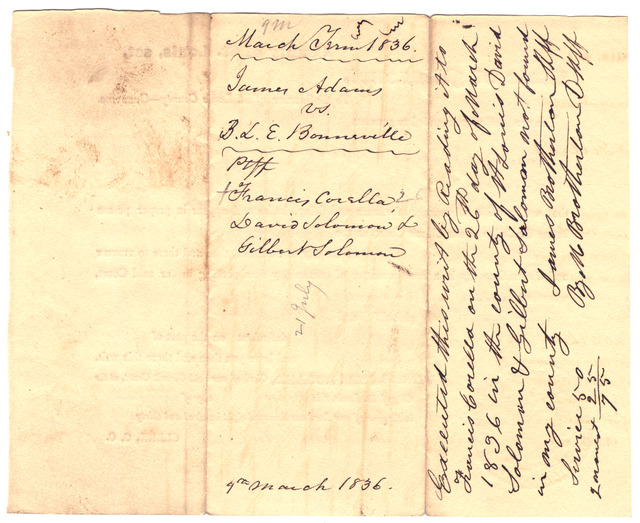 March Term 1836.
James Adams
vs.
B. L. E. Bonneville
Ptff
Francis Corella
David Solomon &
Gilbert Solomon
21 July
9th March 1836.
Executed this writ by Reading it to
Francis Corella on the 26th day of March
1836 in the county of St Louis David
Solomon & Gilbert Solomon not found
in my county James Brotherton Shff
By M Brotherton D Shff
Service 50
2 nonest 25
75